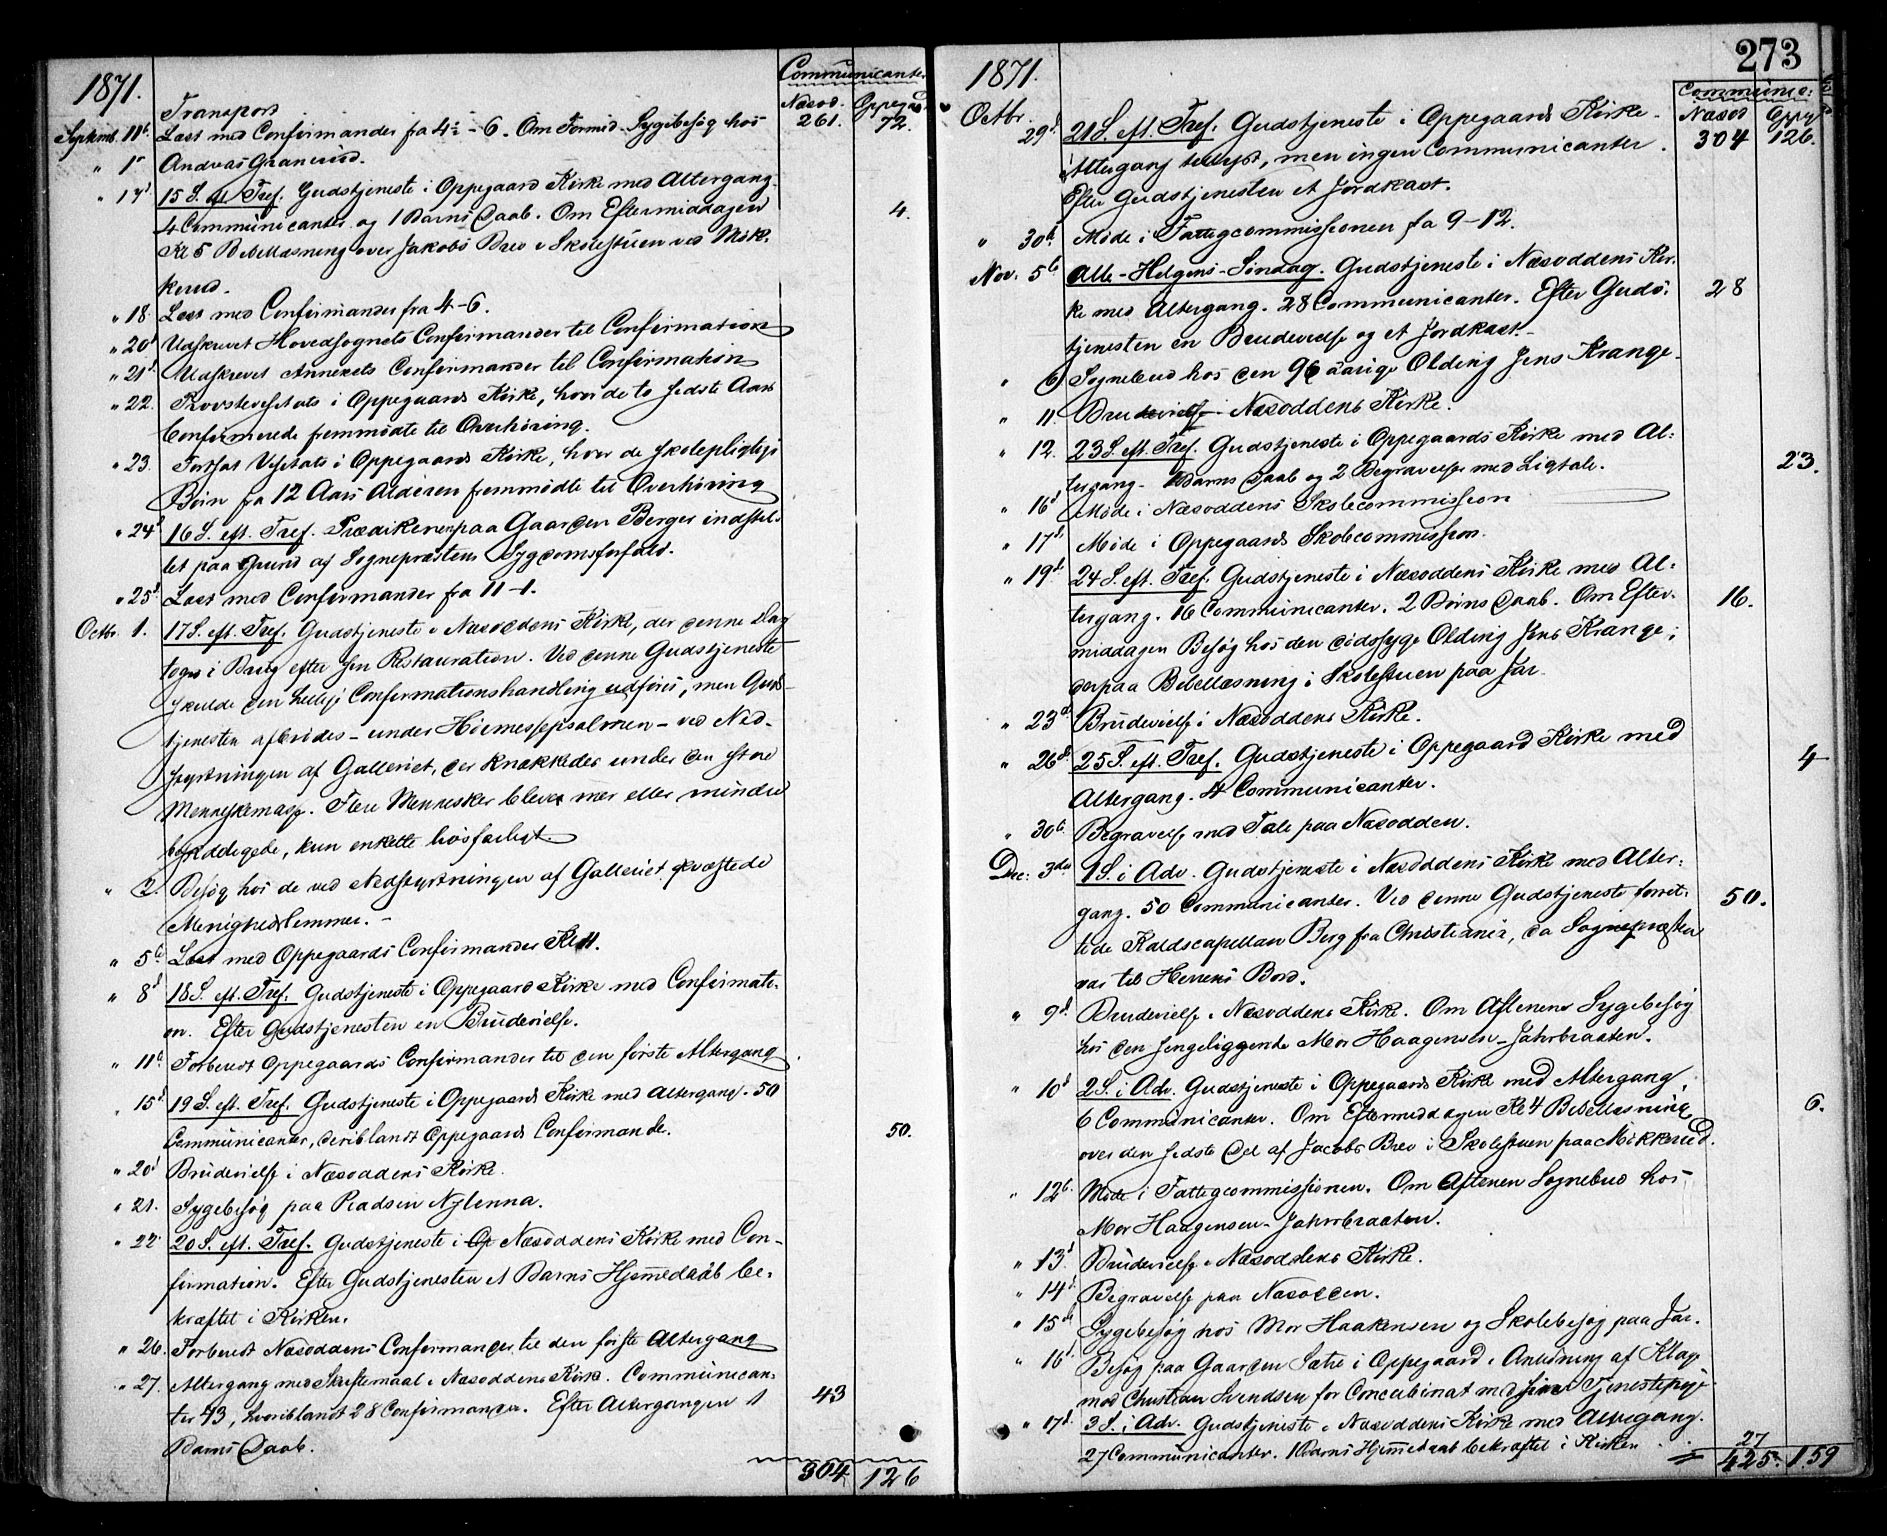 273
1871.
Communicanter
Næsod. Oppegd
Transport 261. 72.
Septemb. 11te Læst med Confirmander fra 4½–6. Om Formid. Sygebesøg hos
" Andreas Granerud.
" 17d 15 S. ef. Tref. Gudstjeneste i Oppegaard Kirke med Altergang.
4 Communicanter og 1 Barns Daab. Om Eftermiddagen 4.
Kl 5 Bibellæsning over Jakobs Brev i Skolestuen ved Mik-
kerud.
" 18. Læst med Confirmander fra 4–6.
" 20d Udskrevet Hovedsognets Confirmander til Confirmation
" 21d Udskrevet Annexets Confirmander til Confirmation
" 22. Provstevisitats i Oppegaards Kirke, hvor de to sidste Aars
Confirmerede fremmødte til Overhøring.
" 23. Fortsat Visitats i Oppegaards Kirke, hvor de skolepligtige
Børn fra 12 Aars Alderen fremmødte til Overhøring
" 24d 16 S. eft. Tref. Prædikenen paa Gaarden Berger indstil-
let paa Grund af Sognepræstens Sygdomsforfald.
" 25d Læst med Confirmander fra 11–1.
Octbr. 1. 17 S. eft. Tref. Gudstjeneste i Næsoddens Kirke, der denne Dag
toges i Brug efter sin Restauration. Ved denne Gudstjeneste
skulde den hellige Confirmationshandling udføres, men Guds-
tjenesten afbrødes – under Høimessepsalmen – ved Ned-
styrtningen af Galleriet, der knækkedes under den store
Menneskemasse. Flere Mennesker bleve mer eller mindre
beskadigede, kun enkelte livsfarligt.
" 2. Besøg hos de ved Nedstyrtningen af Galleriet qvæstede
Menighedslemmer. –
" 5te Læst med Oppegaards Confirmander Kl 11.
" 8d 18 S. eft. Tref. Gudstjeneste i Oppegaard Kirke med Confirmati-
on. Efter Gudstjenesten en Brudevielse.
" 11te Forberedt Oppegaards Confirmander til den første Altergang
" 15d 19 S. eft. Tref. Gudstjeneste i Oppegaards Kirke med Altergang. 50
Communicanter, deriblandt Oppegaards Confirmande. 50.
" 20d Brudevielse i Næsoddens Kirke.
" 21. Sygebesøg paa Pladsen Nylenna.
" 22 20 S. eft. Tref. Gudstjeneste i Op Næsoddens Kirke med Con-
firmation. Efter Gudstjenesten et Barns Hjemmedaab be-
kræftet i Kirken.
" 26. Forberedt Næsoddens Confirmander til den første Altergang
" 27. Altergang med Skriftemaal i Næsoddens Kirke. Communican-
ter 43, hvoriblandt 28 Confirmander. Efter Altergangen 1 43
Barns Daab.
304 126
1871.
Communic:
Næsod Oppegd
304 126.
Octbr. 29d 21 S. eft. Tref. Gudstjeneste i Oppegaards Kirke.
Altergang tillyst, men ingen Communicanter.
Efter Gudstjenesten et Jordkast.
" 30d Møde i Fattigcommissionen fra 9–12.
Nov. 5te Alle-Helgens-Søndag. Gudstjeneste i Næsoddens Kir-
ke med Altergang. 28 Communicanter. Efter Guds- 28
tjenesten en Brudevielse og et Jordkast.
" 6 Sognebud hos den 96 aarige Olding Jens Krange.
" 11. Brudevielse i Næsoddens Kirke.
" 12. 23 S. eft. Tref. Gudstjeneste i Oppegaards Kirke med Al-
tergang. Barns Daab og 2 Begravelser med Ligtale. 23.
" 16d Møde i Næsoddens Skolecommission
" 17d Møde i Oppegaards Skolecommission.
" 19d 24 S. eft. Tref. Gudstjeneste i Næsoddens Kirke med Al-
tergang. 16 Communicanter. 2 Børns Daab. Om Efter- 16.
middagen Besøg hos den dødssyge Olding Jens Krange;
derpaa Bibellæsning i Skolestuen paa Jar.
" 23d Brudevielse i Næsoddens Kirke.
" 26d 25 S. eft. Tref. Gudstjeneste i Oppegaard Kirke med 4
Altergang. 4 Communicanter.
" 30te Begravelse med Tale paa Næsodden.
Dec: 3die 1 S. i Adv. Gudstjeneste i Næsoddens Kirke med Alter-
gang. 50 Communicanter. Ved denne Gudstjeneste forret- 50.
tede Kaldscapellan Berg fra Christiania, da Sognepræsten
var til Herrens Bord.
" 9d Brudevielse i Næsoddens Kirke. Om Aftenen Sygebesøg
hos den sengeliggende Mor Haagensen-Jahrbraaten.
" 10d 2 S. i Adv. Gudstjeneste i Oppegaards Kirke med Altergang.
6 Communicanter. Om Eftermiddagen Kl 4 Bibellæsning 6.
over den sidste Del af Jacobs Brev i Skolestuen paa Mikkerud.
" 12te Møde i Fattigcommissionen. Om Aftenen Sognebud hos
Mor Haagensen-Jahrbraaten.
" 13d Brudevielse i Næsoddens Kirke.
" 14d Begravelse paa Næsodden.
" 15de Sygebesøg hos Mor Haakensen og Skolebesøg paa Jar.
" 16d Besøg paa Gaarden Sætre i Oppegaard i Anledning af Klage
mod Christian Svendsen for Concubinat med sin Tjenestepige.
" 17d 3 S. i Adv. Gudstjeneste i Næsoddens Kirke med Altergang.
27 Communicanter. 1 Barns Hjemmedaab bekræftet i Kirken 27
= 425. 159